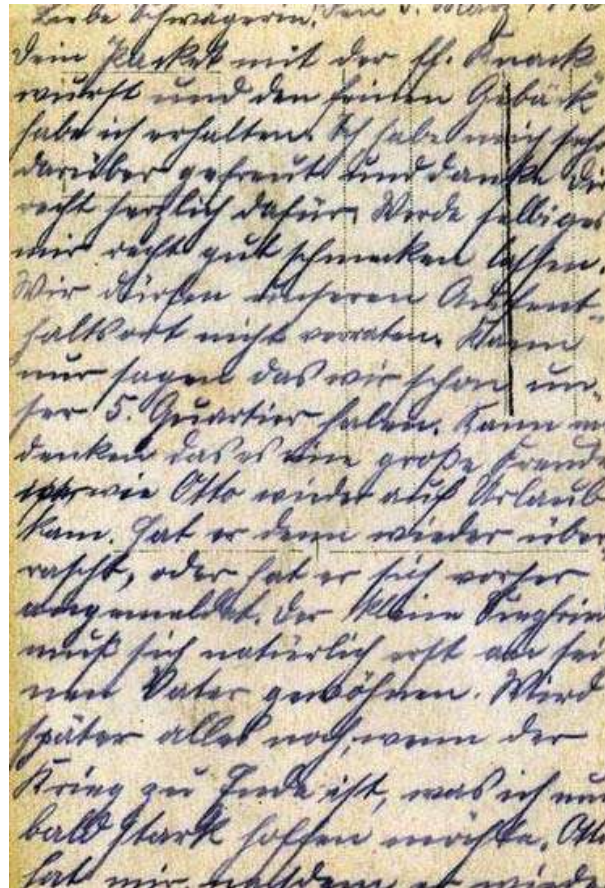 Liebe Schwägerin! Den 5. März
Dein Packet mit der ff. Knack
wurst und den feinen Gebäck
habe ich erhalten. Ich habe mich sehr
darüber gefreut und danke Dir
recht herzlich dafür. Werde selbiges
mir recht gut schmecken lassen.
Wir dürfen unseren Aufent-
haltsort nicht verraten. Kann
nur sagen das wir schon un-
ser 5. Quartier haben. Kann m
denken das es eine große Freude
war wie Otto wieder auf Urlaub
kam. Hat er denn wieder über-
rascht, oder hat er sich vorher
angemeldet. Der kleine Siegfried
muß sich natürlich erst an sei
nen Vater gewöhnen. Wird
später alles noch, wenn der
Krieg zu Ende ist, was ich nur
bald stark hoffen möchte. Otto
hat mir, nachdem er wieder